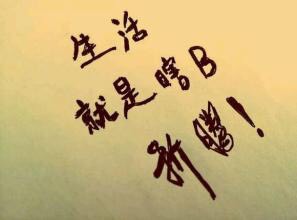 生活
就是瞎B
折腾！